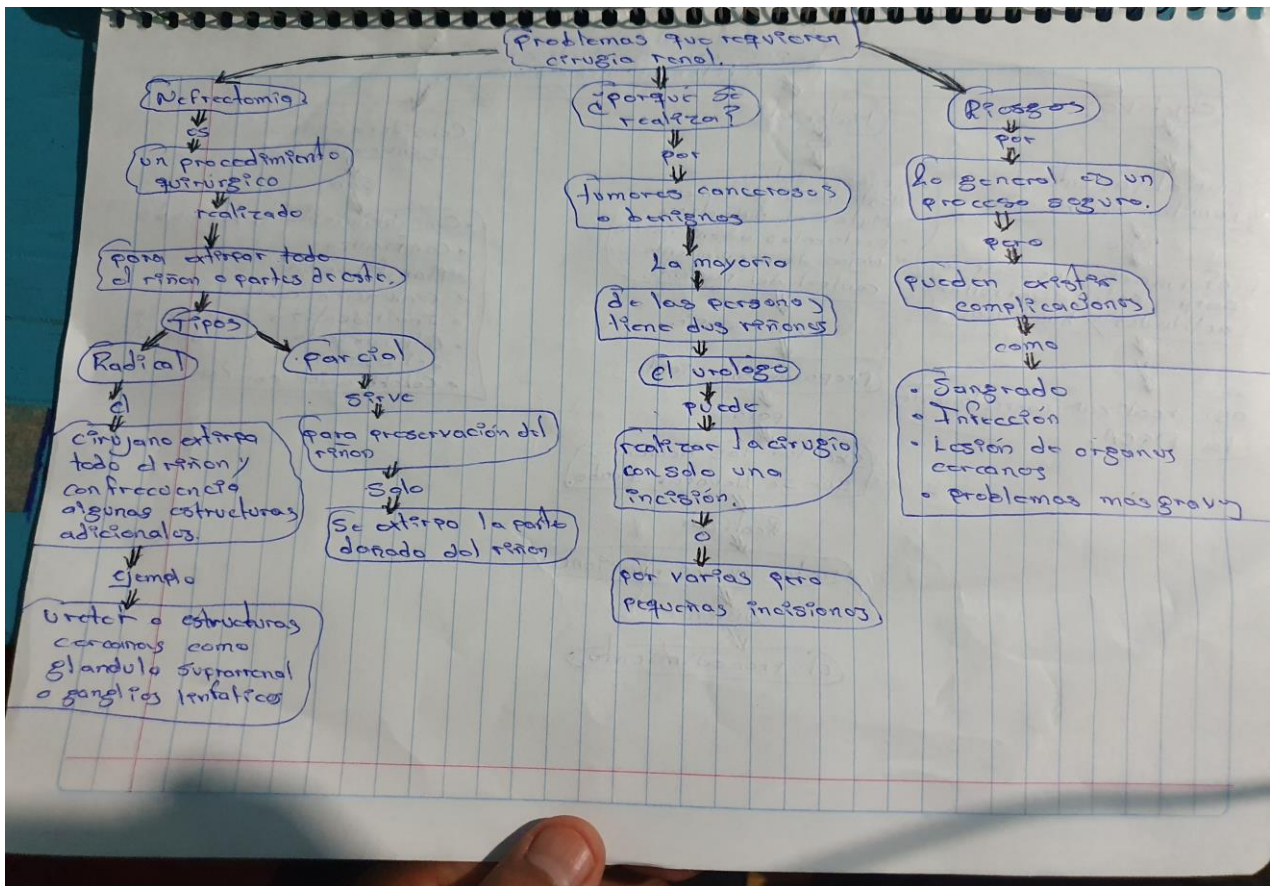 Problemas que requieren
cirugía renal.
Nefrectomia
es
un procedimiento
quirúrgico
realizado
para extirpar todo
el riñon o partes de este.
Tipos
Radical
el
cirujano extirpa
todo el riñon y
con frecuencia
algunas estructuras
adicionales.
ejemplo
ureter o estructuras
cercanas como
glandula suprarrenal
o ganglios linfaticos
parcial
sirve
para preservación del
riñon
Solo
Se extirpa la parte
dañada del riñon
¿porqué se
realiza?
por
tumores cancerosos
o benignos
La mayoria
de las personas
tiene dos riñones
el urologo
puede
realizar la cirugia
con solo una
incisión.
o
por varias pero
pequeñas incisiones
Riesgos
por
Lo general es un
proceso seguro.
pero
pueden existir
complicaciones
como
• Sangrado
• Infección
• Lesión de organos
cercanos
• problemas más graves